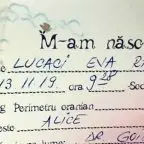 M-am născ
e LUCACI EVA R
13 11 19 ora 9 20 Soc
g Perimetru cranian
este ALICE
DR GOI